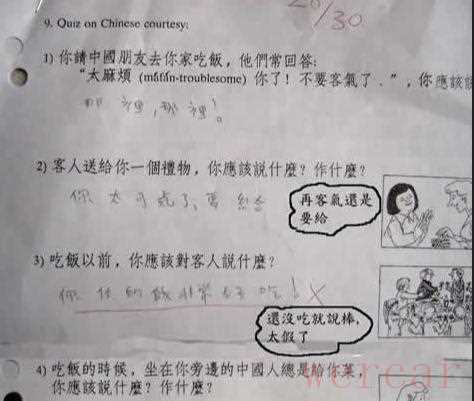 20/30
9. Quiz on Chinese courtesy:
1) 你請中國朋友去你家吃飯，他們常回答:
“太麻煩 (máfán-troublesome) 你了! 不要客氣了.”, 你應該
那裡,那裡!
2) 客人送給你一個禮物，你應該説什麼? 作什麼?
你太可
再客氣還是要給
3) 吃飯以前，你應該對客人説什麼?
你 的飯非常 吃! X
還沒吃就說棒,
太假了
4) 吃飯的時候，坐在你旁邊的中國人總是給你菜,
你應該説什麼? 作什麼?
wercar